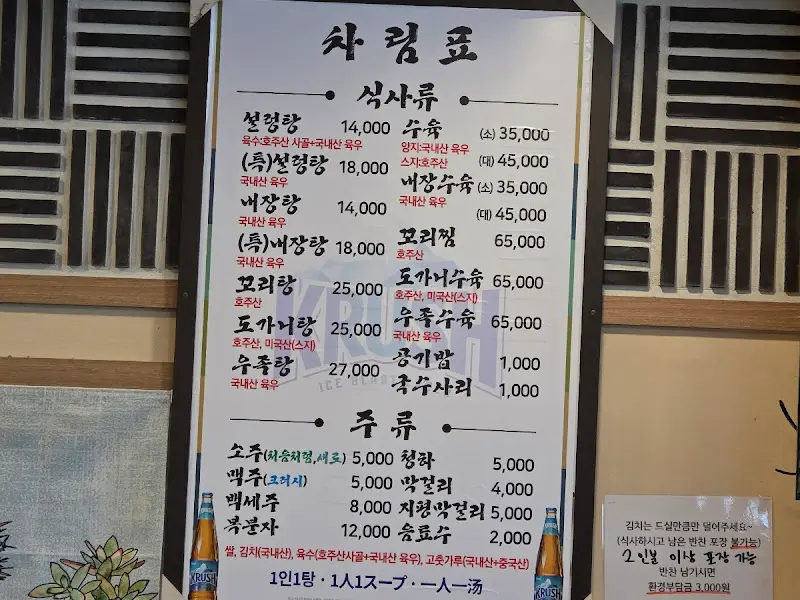 차림표
식사류
설렁탕 14,000
육수:호주산 사골+국내산 육우
(특)설렁탕 18,000
국내산 육우
내장탕 14,000
국내산 육우
(특)내장탕 18,000
국내산 육우
꼬리탕 25,000
호주산
도가니탕 25,000
호주산, 미국산(스지)
우족탕 27,000
국내산 육우
수육 (소) 35,000
양지:국내산 육우
스지:호주산 (대) 45,000
내장수육 (소) 35,000
국내산 육우
(대) 45,000
꼬리찜 65,000
호주산
도가니수육 65,000
호주산, 미국산(스지)
우족수육 65,000
국내산 육우
공기밥 1,000
국수사리 1,000
KRUSH
주류
소주(처음처럼,새로) 5,000
맥주(크러시) 5,000
백세주 8,000
복분자 12,000
청하 5,000
막걸리 4,000
지평막걸리 5,000
음료수 2,000
쌀, 김치(국내산), 육수(호주산사골+국내산 육우), 고춧가루(국내산+중국산)
1인1탕 · 1人1スープ · 一人一汤
KRUSH
KRUSH
김치는 드실만큼만 덜어주세요~
(식사하시고 남은 반찬 포장 불가능)
2인분 이상 포장 가능
반찬 남기시면
환경부담금 3,000원